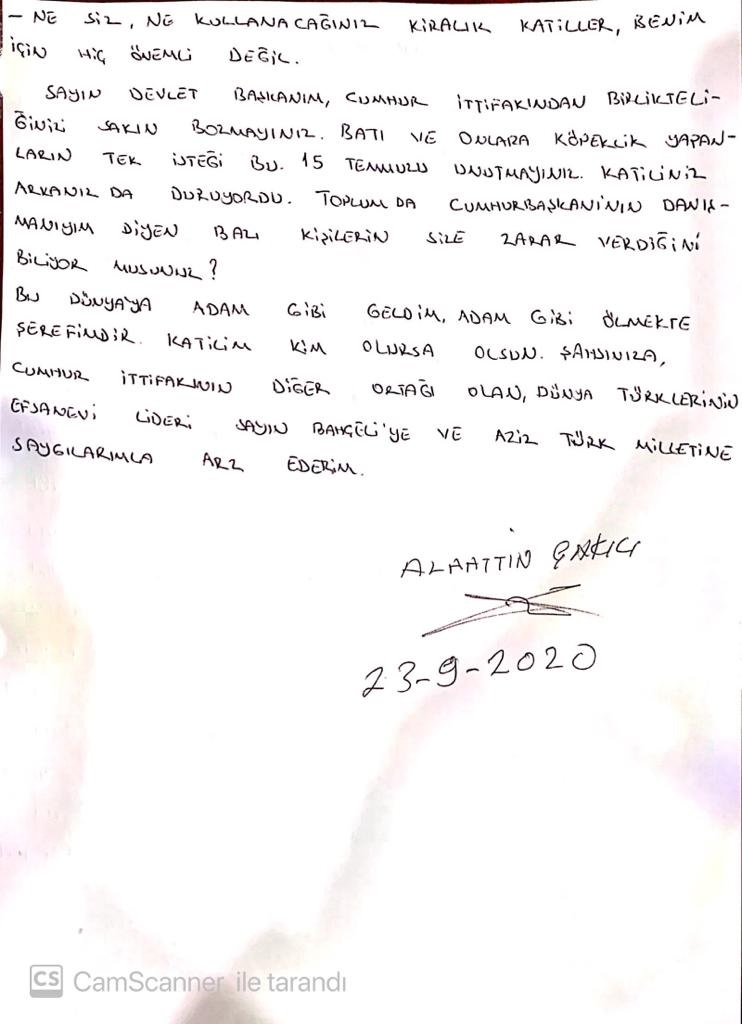 - NE SİZ, NE KULLANACAĞINIZ KİRALIK KATİLLER, BENİM
İÇİN HİÇ ÖNEMLİ DEĞİL.
SAYIN DEVLET BAŞKANIM, CUMHUR İTTİFAKINDAN BİRLİKTELİ-
ĞİNİZİ SAKIN BOZMAYINIZ. BATI VE ONLARA KÖPEKLİK YAPAN-
LARIN TEK İSTEĞİ BU. 15 TEMMUZU UNUTMAYINIZ. KATİLİNİZ
ARKANIZ DA DURUYORDU. TOPLUM DA CUMHURBAŞKANI'NIN DANIŞ-
MANIYIM DİYEN BAZI KİŞİLERİN SİZE ZARAR VERDİĞİNİ
BİLİYOR MUSUNUZ?
BU DÜNYA'YA ADAM GİBİ GELDİM, ADAM GİBİ ÖLMEKTE
ŞEREFİMDİR. KATİLİM KİM OLURSA OLSUN. ŞAHSINIZA,
CUMHUR İTTİFAKININ DİĞER ORTAĞI OLAN, DÜNYA TÜRKLERİNİN
EFSANEVİ LİDERİ SAYIN BAHÇELİ'YE VE AZİZ TÜRK MİLLETİNE
SAYGILARIMLA ARZ EDERİM.
ALAATTİN ÇAKICI
23-9-2020
CS CamScanner ile tarandı